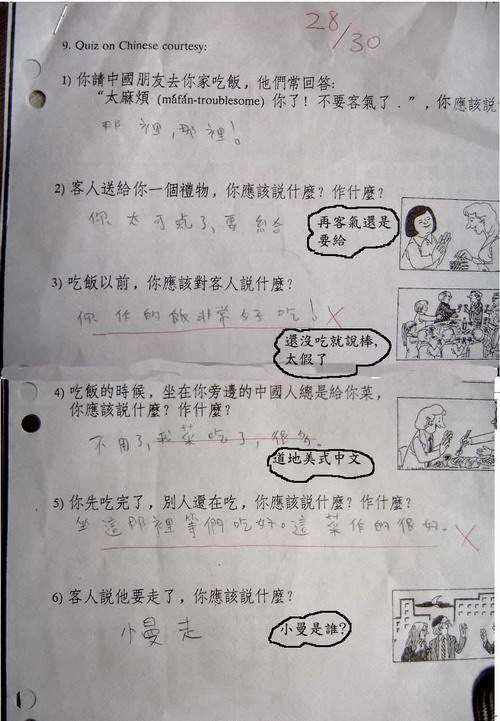 28/30
9. Quiz on Chinese courtesy:
1) 你請中國朋友去你家吃飯，他們常回答:
“太麻煩 (máfán-troublesome) 你了！不要客氣了．”，你應該說
那裡，那裡！
2) 客人送給你一個禮物，你應該說什麼？作什麼？
你太可
了，要給
再客氣還是
要給
3) 吃飯以前，你應該對客人說什麼？
你作的飯非常好吃！
還沒吃就說棒，
太假了
4) 吃飯的時候，坐在你旁邊的中國人總是給你菜，
你應該說什麼？作什麼？
不用了，我菜吃了，很多。
道地美式中文
5) 你先吃完了，別人還在吃，你應該說什麼？作什麼？
坐這那裡等們吃好。這菜作的很好。
6) 客人說他要走了，你應該說什麼？
小曼走
小曼是誰？